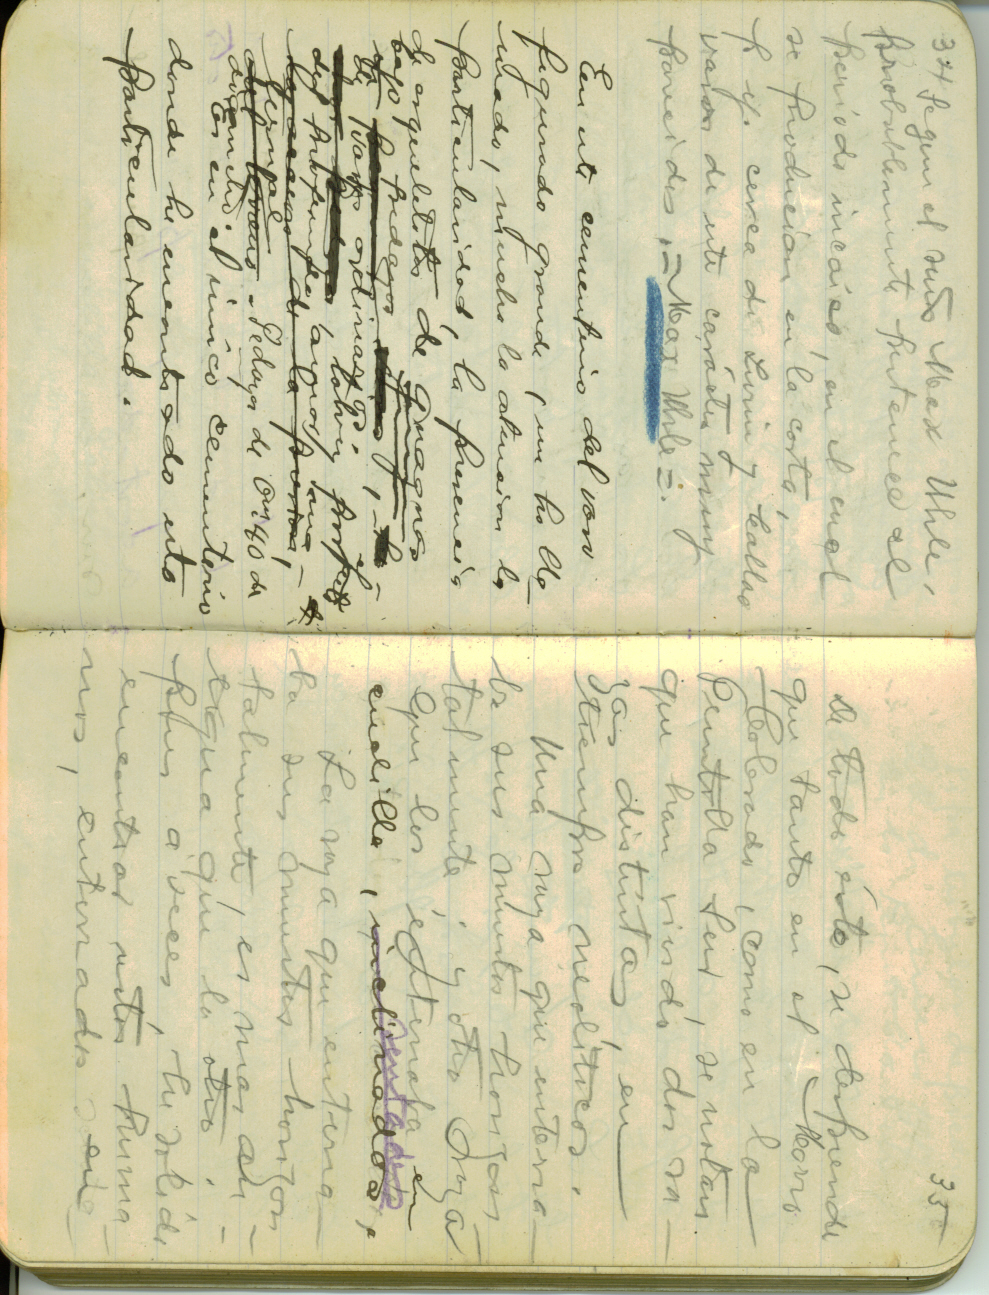 34
Segun el señor Max Uhle,
probablemente pertenece al
periodo incaico, en el cual
se producian en la costa,
p. ej. cerca de Lurin y Callao
vasos de este carácter muy
parecidos.=Max Uhle=.
En este cementerio del vaso
figurado grande, me ha lla-
mado, mucho la atencion la
particularidad, la presencia
de esqueletos de guanacos
bajo pedazos
de vasos ordinarios,
Pedazos de 0m40 de
diametro
Es en el único cementerio
donde he encontrado esta
particularidad.
35
De todo ésto, se desprende
que tanto en el Morro
Colorado, como en la
Puntilla Sur, se notan
que han vivido dos ra-
zas distintas, en
tiempos neolíticos.
Una raza que enterra-
ba sus muertos horizon
talmente; y otra raza
que los éxtumaba en
cuclilla, inclinados,
sentados
La raza que enterra-
ba sus muertos horizon-
talmente, es mas an-
tigua que la otra.
pues á veces, he solido
encontrar estas huma-
nos, enterrados en